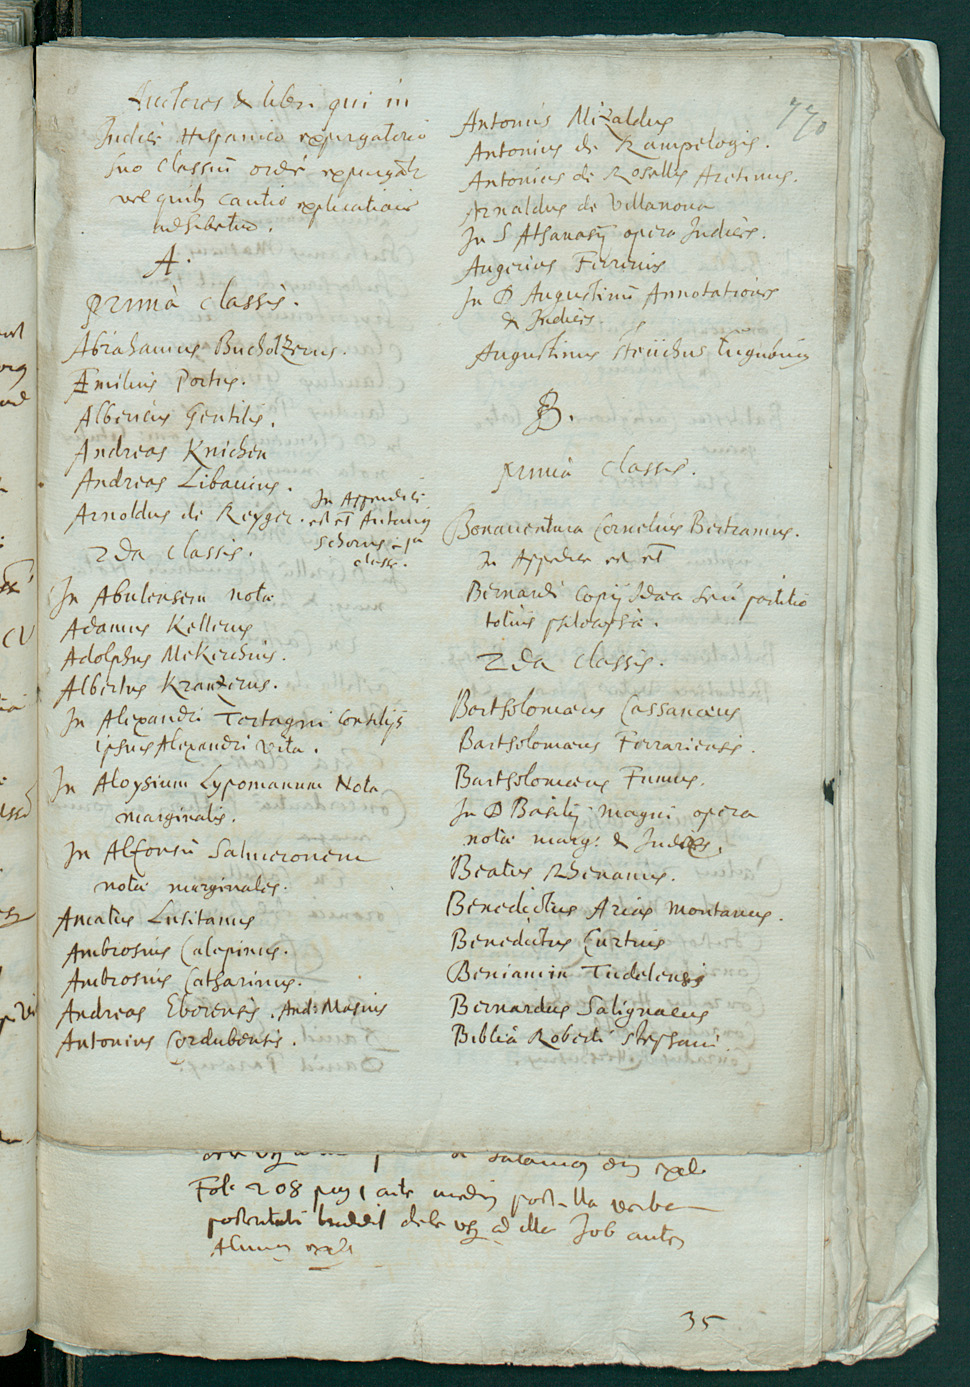 Auctores & libri qui in
Indice Hispanico expurgatorio
suo classiũ ordĩe expurgãt
vel quib9 cautio explicatioīs
adhibetur.
A.
Prima classis.
Abrahamus Bucholzerus.
Æmilius Portus.
Albericus Gentilis.
Andreas Knichen
Andreas Libavius.
Arnoldus de Reyger. In Appendice
est et Antonius
Schorus
classis.
2da classis.
In Abulensem nota
Adamus Kellerus
Adolphus Mekerchus.
Albertus Kranzius.
In Alexandri Tartagni Consilijs
ipsius Alexandri vita.
In Aloysium Lypomanum Nota
marginalis.
In Alfonsũ Salmeronem
notæ marginales.
Amatus Lusitanus
Ambrosius Calepinus.
Ambrosius Catharinus.
Andreas Eborensis. And: Masius
Antonius Cordubensis.
770
Antonius Mizaldus
Antonius de Rampelogis.
Antonius de Rosellis Aretinus.
Arnaldus de Villanova
In S Athanasij opera Indices.
Augerius Ferrerius
In D Augustinũ Annotationes
& Indices.
Augustinus Steuchus Eugubinus
B.
Prima classis.
Bonaventura Cornelius Bertramus.
In Appendice est et
Bernardi Copij Idæa seu partitio
totius
2da classis.
Bartholomæus Cassanæus
Bartholomæus Ferrariensis.
Bartholomæus Fumus.
In D Basilij magni opera
notæ marg: & Indices.
Beatus Rhenanus.
Benedictus Arias Montanus.
Benedictus Curtius
Beniamin Tudelensis
Bernardus Salignacus
Biblia Roberti Stephani.
Fol. 208 pag 1 ante medium post illa verba
dele usq ad illa Job autem
35